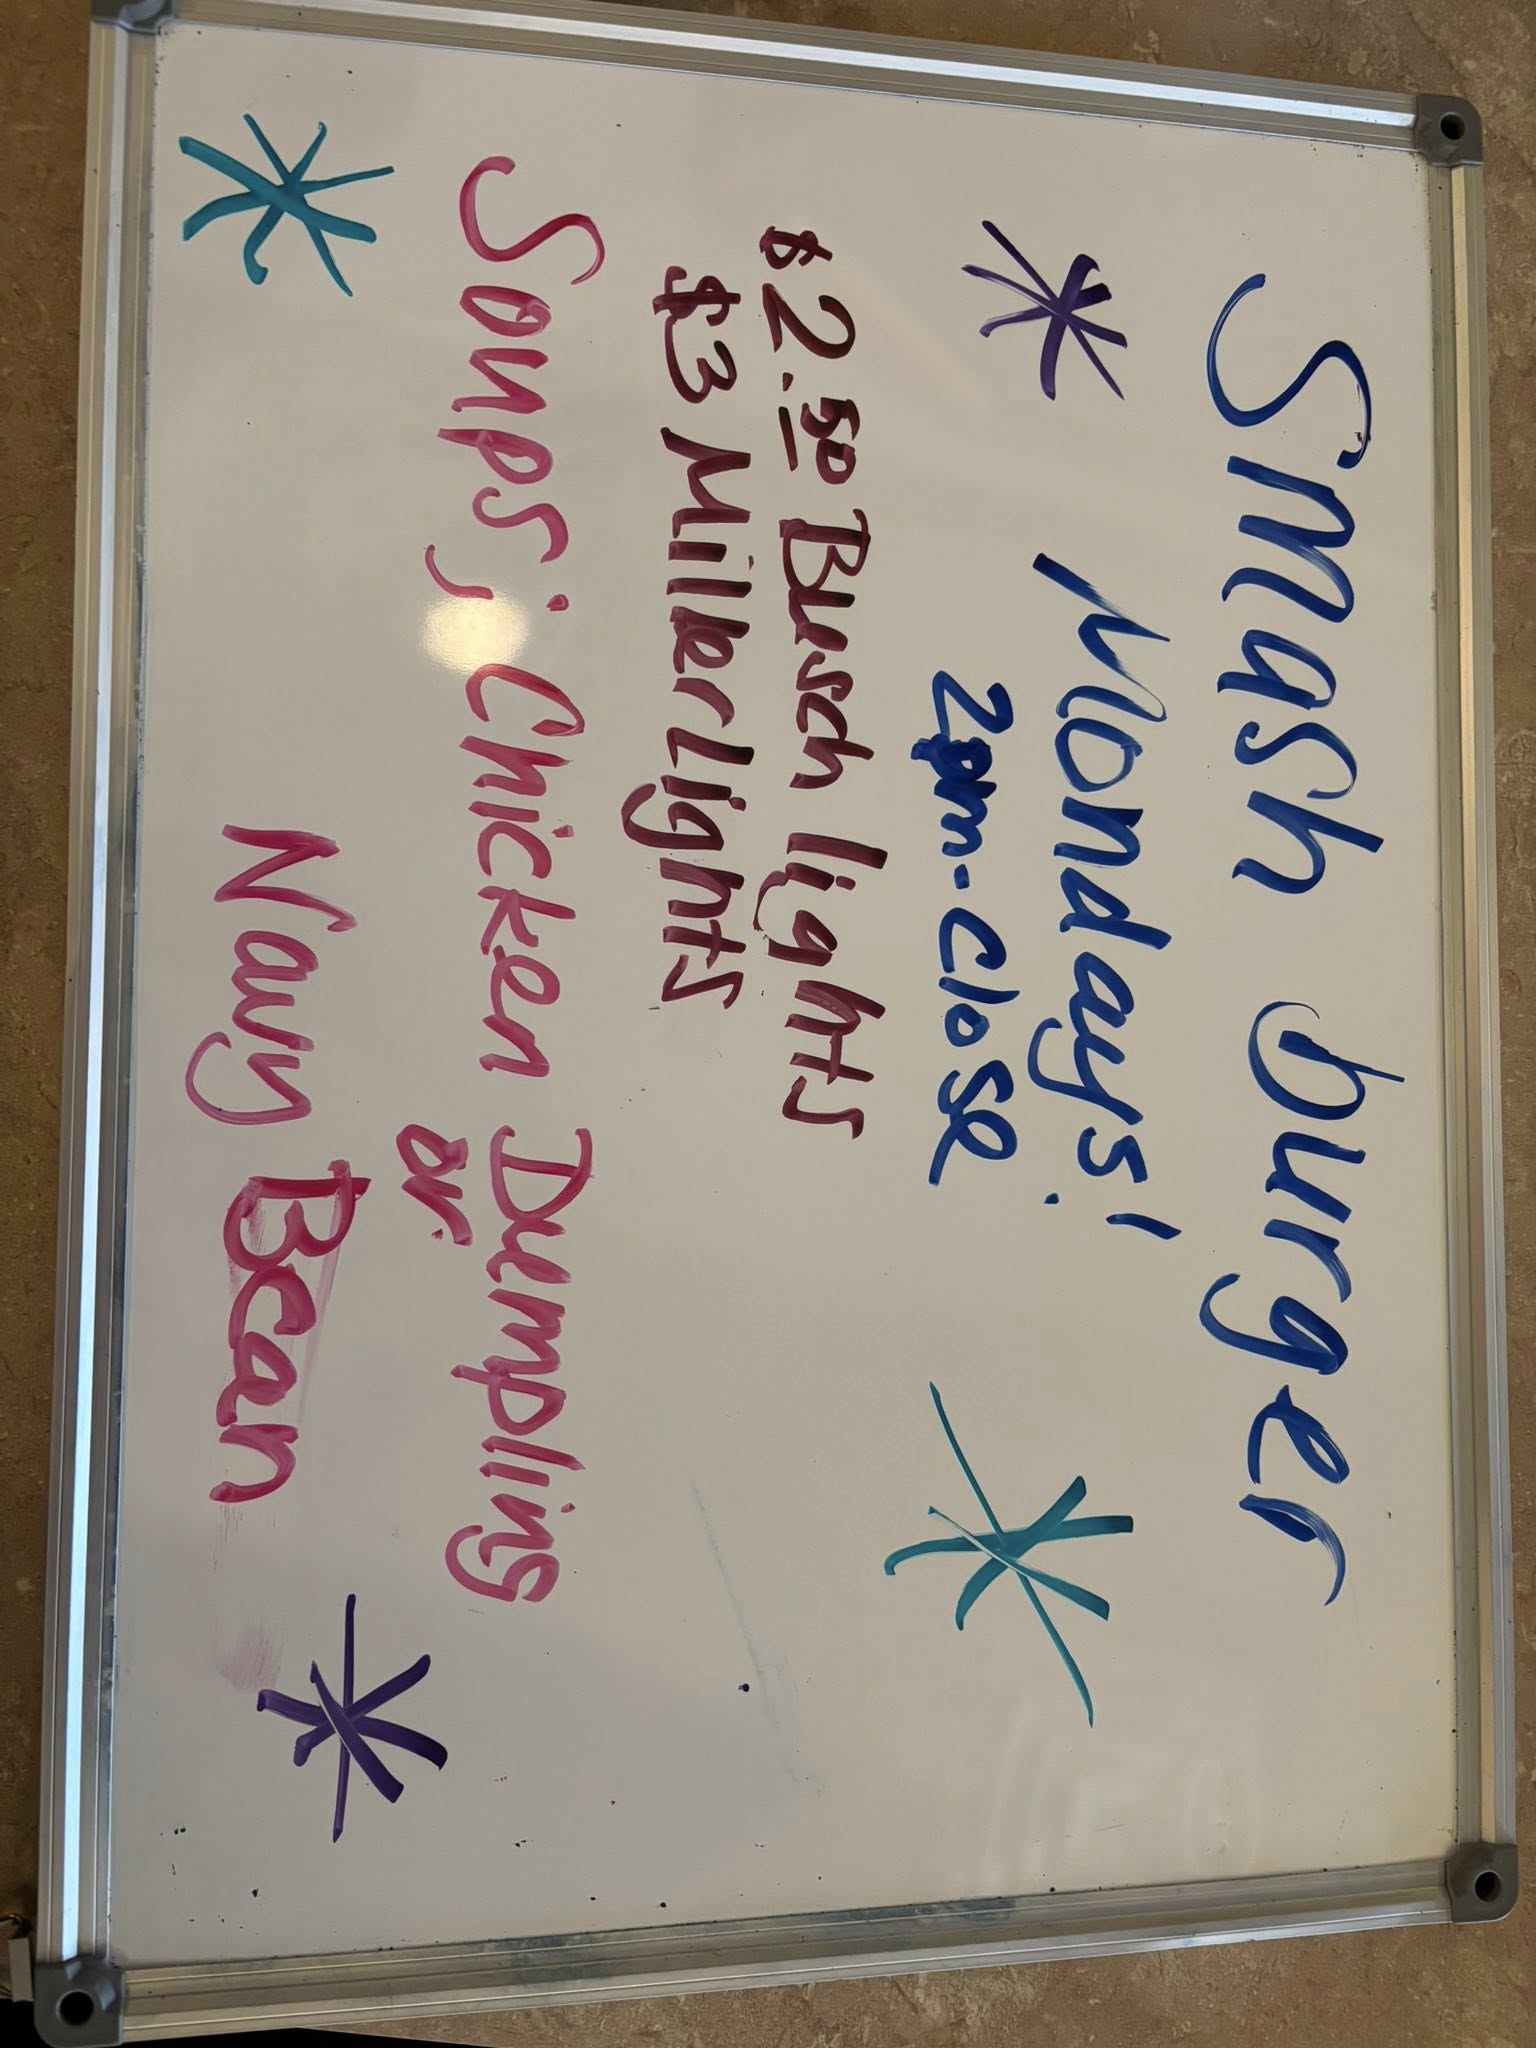 Smash burger
Mondays!
2pm-close
$2.50 Busch lights
$3 Miller Lights
Soups; Chicken Dumpling
or.
Navy Bean